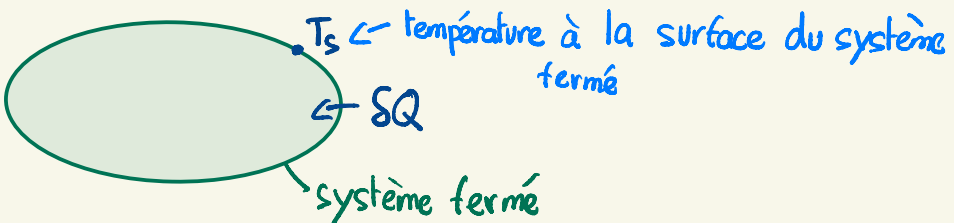 Ts ← température à la surface du système
fermé
← δQ
système fermé